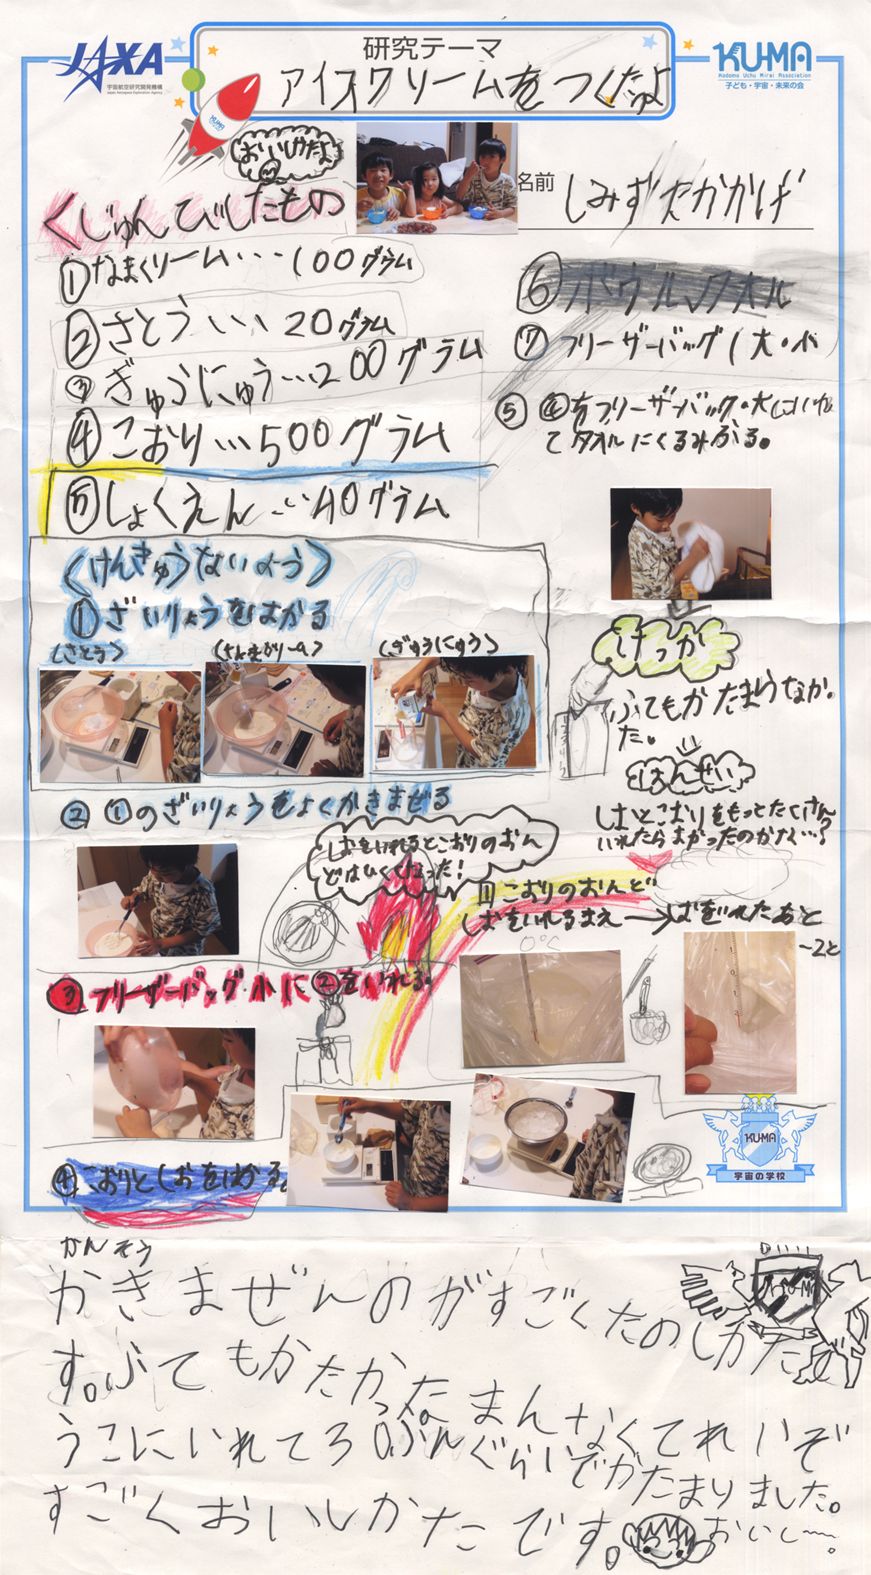 JAXA
宇宙航空研究開発機構
Japan Aerospace Exploration Agency
研究テーマ
アイスクリームをつくたよ
KU-MA
Kodomo Uchu Mirai Association
子ども・宇宙・未来の会
KU-MA
おいしかたよ
名前
しみずたかかげ
〈じゅんびしたもの
①なまくりーム・・・100グラム
②さとう・・・20グラム
③ぎゅうにゅう・・・200グラム
④こおり・・・500グラム
⑤しょくえん・・・40グラム
⑥ボウル、タオル
⑦フリーザーバッグ(大・小)
⑤ ④をフリーザーバック・大にいれ
てタオルにくるみふる。
〈けんきゅうないよう〉
①ざいりょうをはかる
(さとう)
(ぎゅうにゅう)
② ①のざいりょうをよくかきまぜる
しおをいれるとこおりのおん
どはひくくなった!
③フリーザーバッグ・小に②をいれる。
④こおりとしおをはかる。
けっか
ふてもかたまらなか。
た。
はんせい
しおとこおりをもっとたくさん
いれたらよかったのかな…?
こおりのおんど
しおをいれるまえ→しおをいれたあと
0℃
KU-MA
宇宙の学校
かんそう
かきまぜんのがすごくたのしかたで
す。ふてもかたかったまんなくてれいぞ
うこにいれて30ぷんぐらいでかたまりました。
すごくおいしかたです。
おいしー。